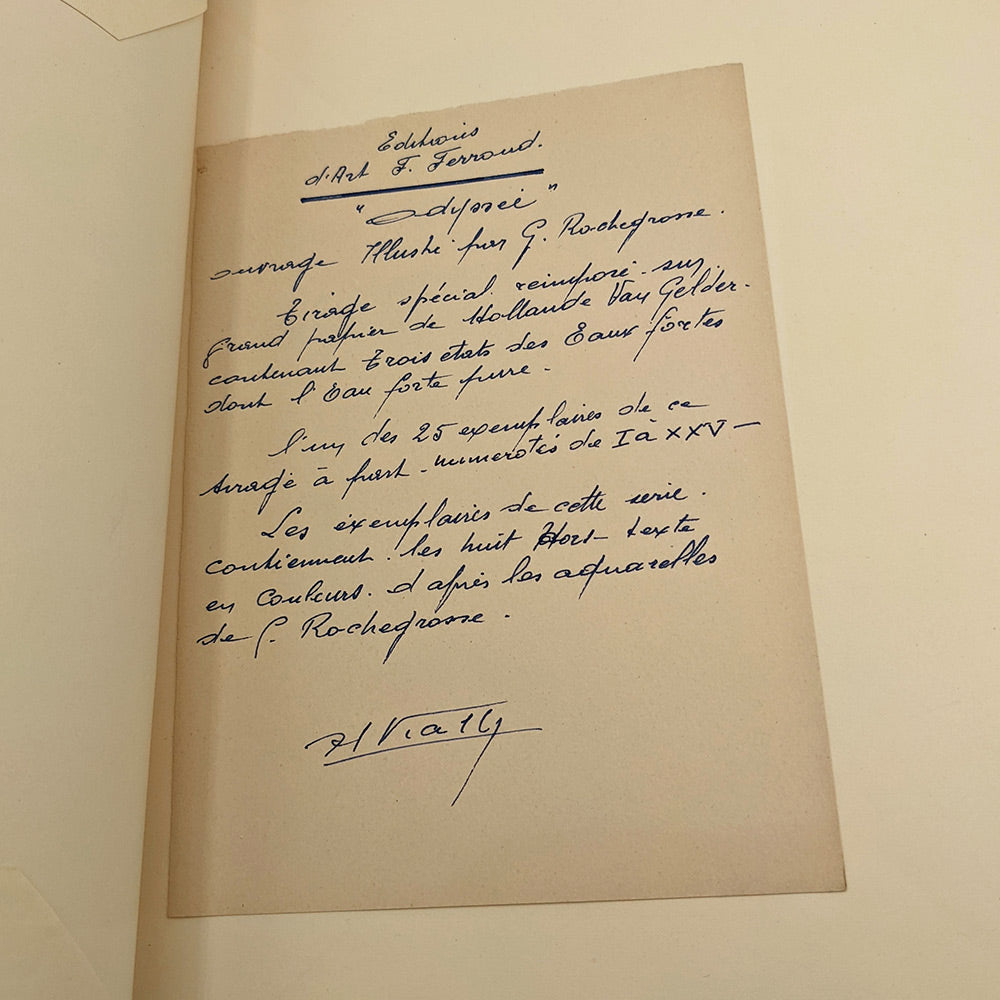 Editions
d'Art F. Ferroud.
"Odyssée"
ouvrage Illustré par G. Rochegrosse.
Tirage spécial reimposé sur
grand papier de Hollande Van Gelder.
contenant trois etats des Eaux fortes
dont l'Eau forte pure.
l'un des 25 exemplaires de ce
tirage à part numerotés de I à XXV —
Les exemplaires de cette serie.
contiennent. les huit Hors-texte
en couleurs. d'après les aquarelles
de G. Rochegrosse.